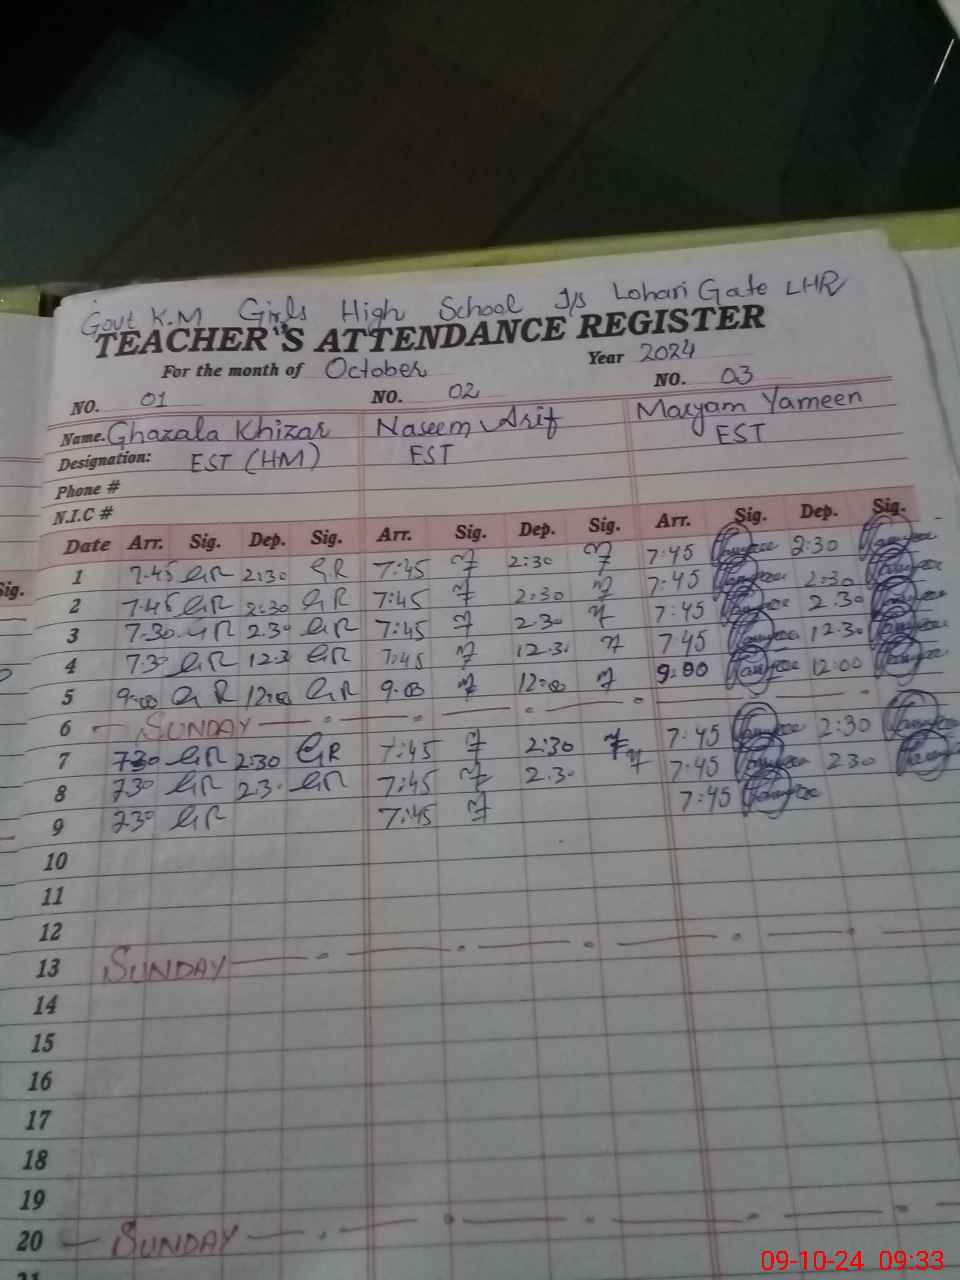 Govt K.M Girls High School I/S Lohari Gate LHR
TEACHER'S ATTENDANCE REGISTER
For the month of October Year 2024
NO. 01 NO. 02 NO. 03
Name. Ghazala Khizar Naseem Arif Maryam Yameen
Designation: EST (HM) EST EST
Phone #
N.I.C #
Date Arr. Sig. Dep. Sig. Arr. Sig. Dep. Sig. Arr. Sig. Dep. Sig.
1 7.45 GR 2:30 GR 7:45 2:30 7:45 2:30
2 7.45 GR 2:30 GR 7:45 2:30 7:45 2:30
3 7.30 GR 2.30 GR 7:45 2.30 7:45 2.30
4 7.30 GR 12.30 GR 7:45 12.30 7:45 12.30
5 9:00 GR 12:00 GR 9.00 12:00 9:00 12:00
6 SUNDAY
7 730 GR 2:30 GR 7:45 2:30 7:45 2:30
8 730 GR 2.30 GR 7:45 2.30 7:45 230
9 730 GR 7:45 7:45
10
11
12
13 SUNDAY
14
15
16
17
18
19
20 SUNDAY
21
Sig.
09-10-24 09:33